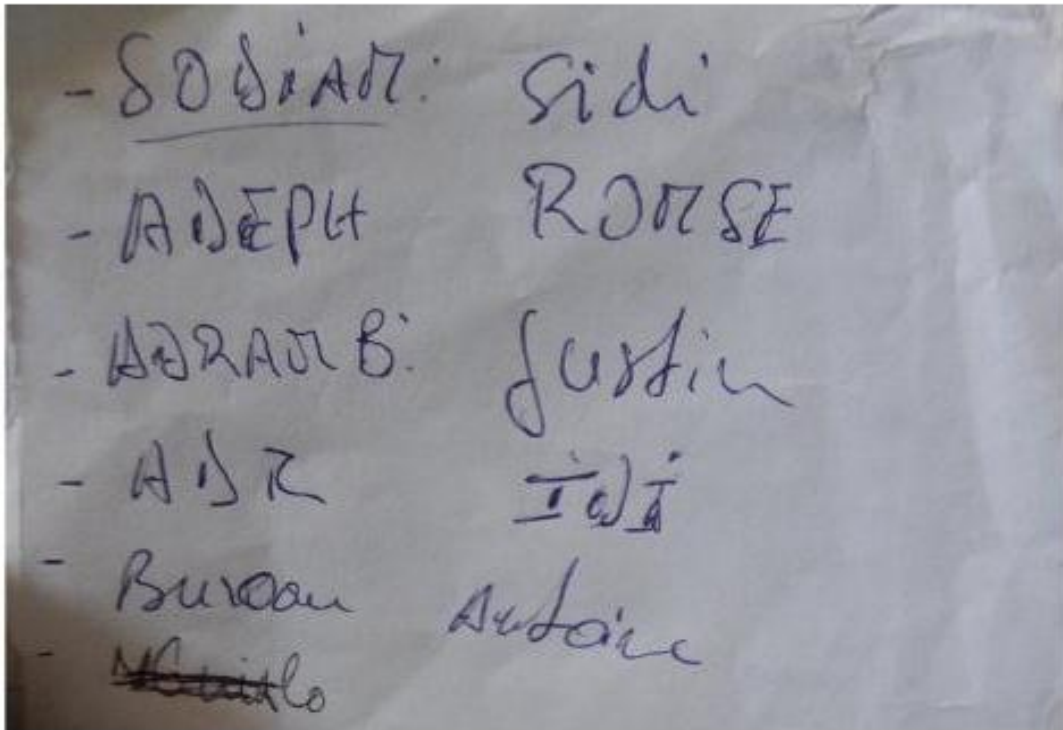 - SODIAM: Sidi
- ADEPH ROMSE
- ADRAMB: Justin
- ADR IDI
- Bureau Antoine
-